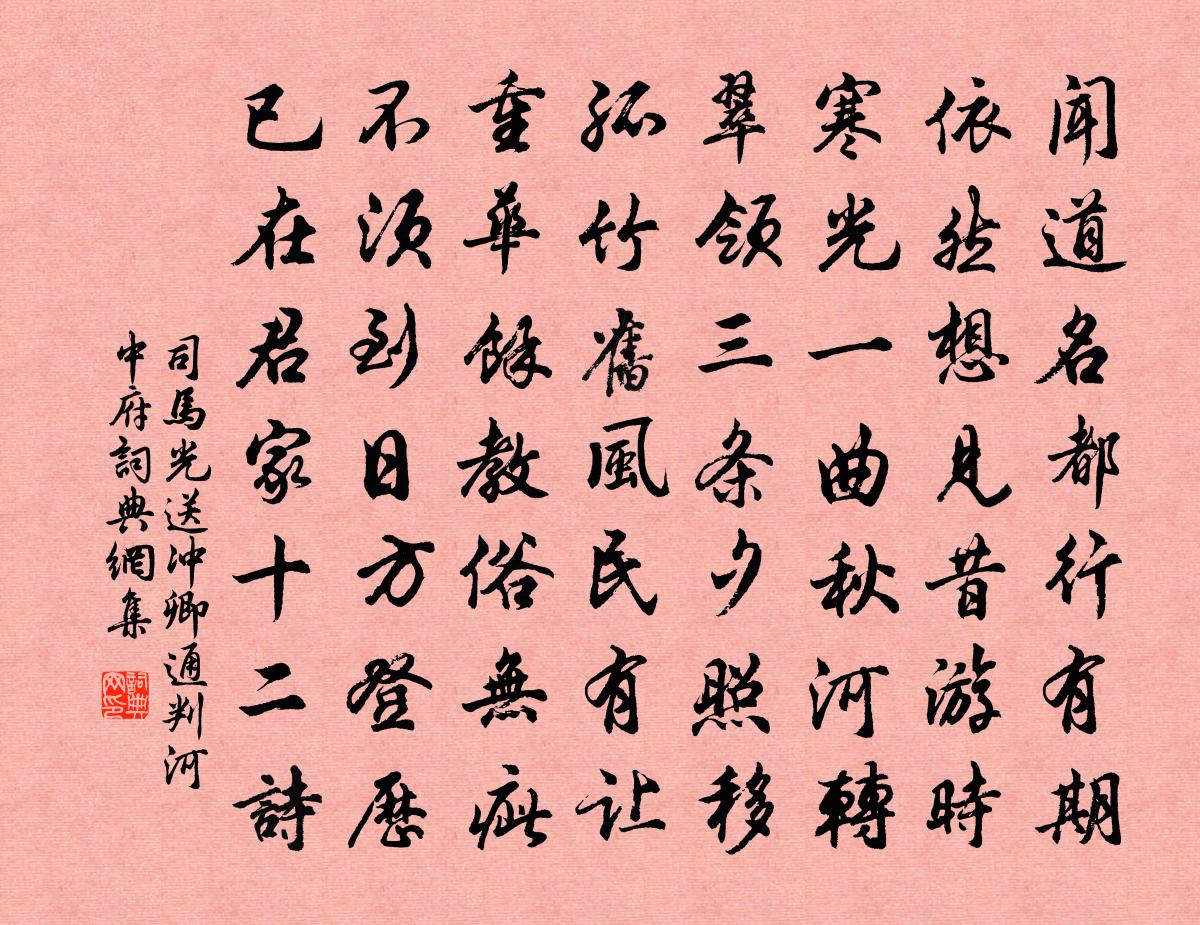 闻道名都行有期
依然想见昔游時
寒光一曲秋河轉
翠领三条夕照移
孤竹舊風民有让
重華餘教俗無疵
不须到日方登歷
已在君家十二詩
司馬光送冲卿通判河
中府詞典網集
詞典网印